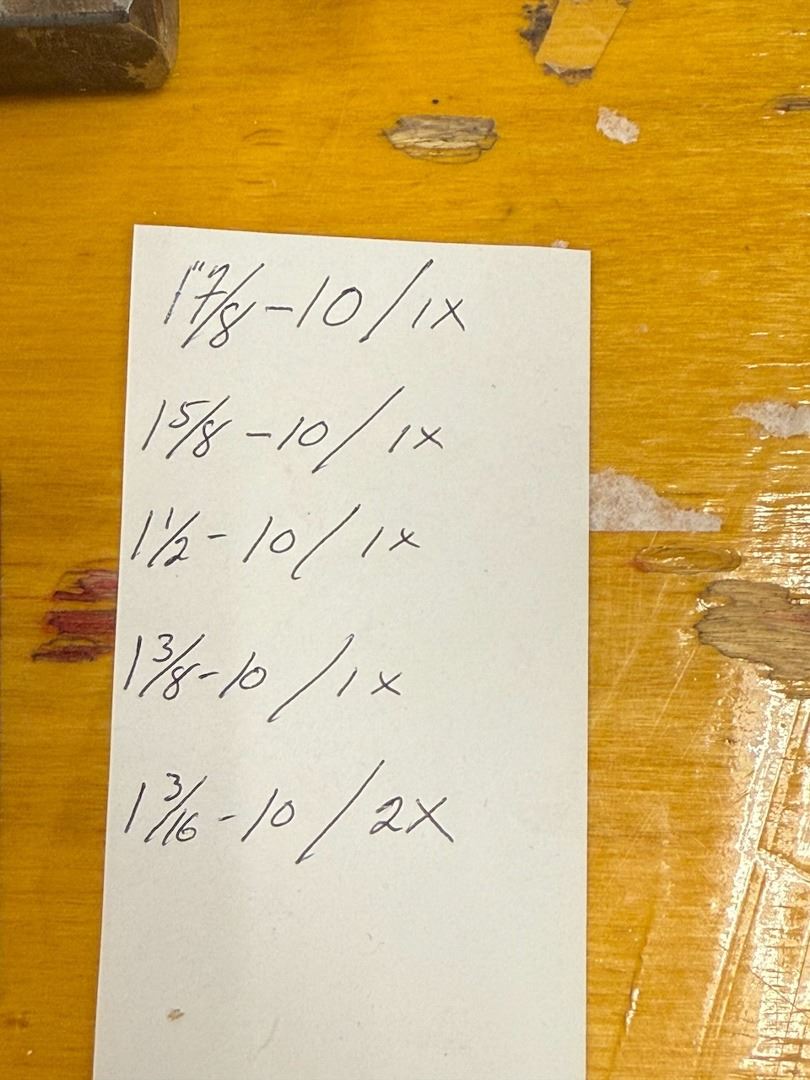 1" 7/8 - 10 / 1x
1 5/8 - 10 / 1x
1 1/2 - 10 / 1x
1 3/8 - 10 / 1x
1 3/16 - 10 / 2x